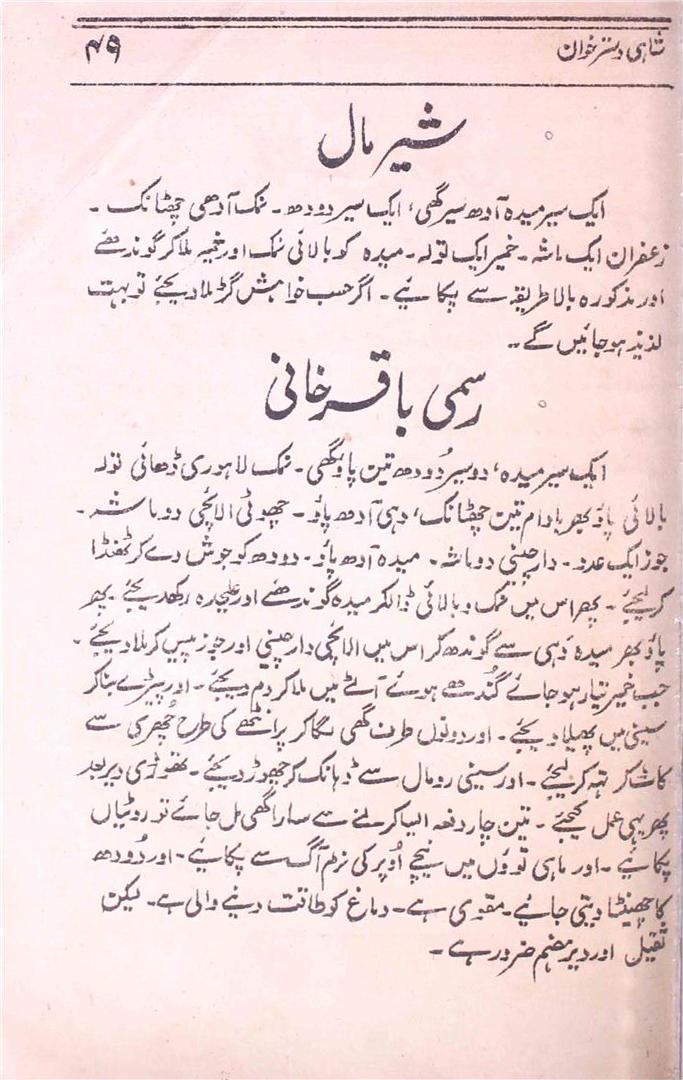 شاہی دسترخوان
۴۹
شیر مال
ایک سیر میدہ آدھ سیر گھی، ایک سیر دودھ۔ نمک آدھی چھٹانک۔
زعفران ایک ماشہ۔ خمیر ایک تولہ۔ میدہ کو بالائی نمک اور خمیر ملا کر گوندھئے
اور مذکورہ بالا طریقہ سے پکائیے۔ اگر حسب خواہش گڑ ملا دیجئے تو بہت
لذیذ ہو جائیں گے۔۔
رسمی باقر خانی
ایک سیر میدہ، دو سیر دُودھ تین پاؤ گھی۔ نمک لاہوری ڈھائی تولہ
بالائی پاؤ بھر بادام تین چھٹانک، دہی آدھ پاؤ۔ چھوٹی الائچی دو ماشہ۔
جوز ایک عدد۔ دار چینی دو ماشہ۔ میدہ آدھ پاؤ۔ دودھ کو جوش دے کر ٹھنڈا
کر لیجئے۔ پھر اس میں نمک و بالائی ڈالکر میدہ گوندھئے اور علیحدہ رکھدیجئے۔ پھر
پاؤ بھر میدہ دہی سے گوندھ کر اس میں الائچی دار چینی اور جوز پیس کر ملا دیجئے۔
جب خمیر تیار ہو جائے گُندھے ہوئے آٹے میں ملا کر دم دیجئے۔ اور پیڑے بنا کر
سینی میں پھیلا دیجئے۔ اور دونوں طرف گھی لگا کر پراٹھے کی طرح چُھری سے
کاٹ کر تہہ کر لیجئے۔ اور سینی رومال سے ڈہانک کر چھوڑ دیجئے۔ تھوڑی دیر بعد
پھر یہی عمل کیجئے۔ تین چار دفعہ ایسا کرلنے سے سارا گھی مل جائے تو روٹیاں
پکائیے۔ اور ماہی توؤں میں نیچے اُوپر کی نرم آگ سے پکائیے۔ اور دُودھ
کا چھینٹا دیتی جائیے۔ مقوی ہے۔ دماغ کو طاقت دینے والی ہے۔ لیکن
ثقیل اور دیر ہضم ضرور ہے۔